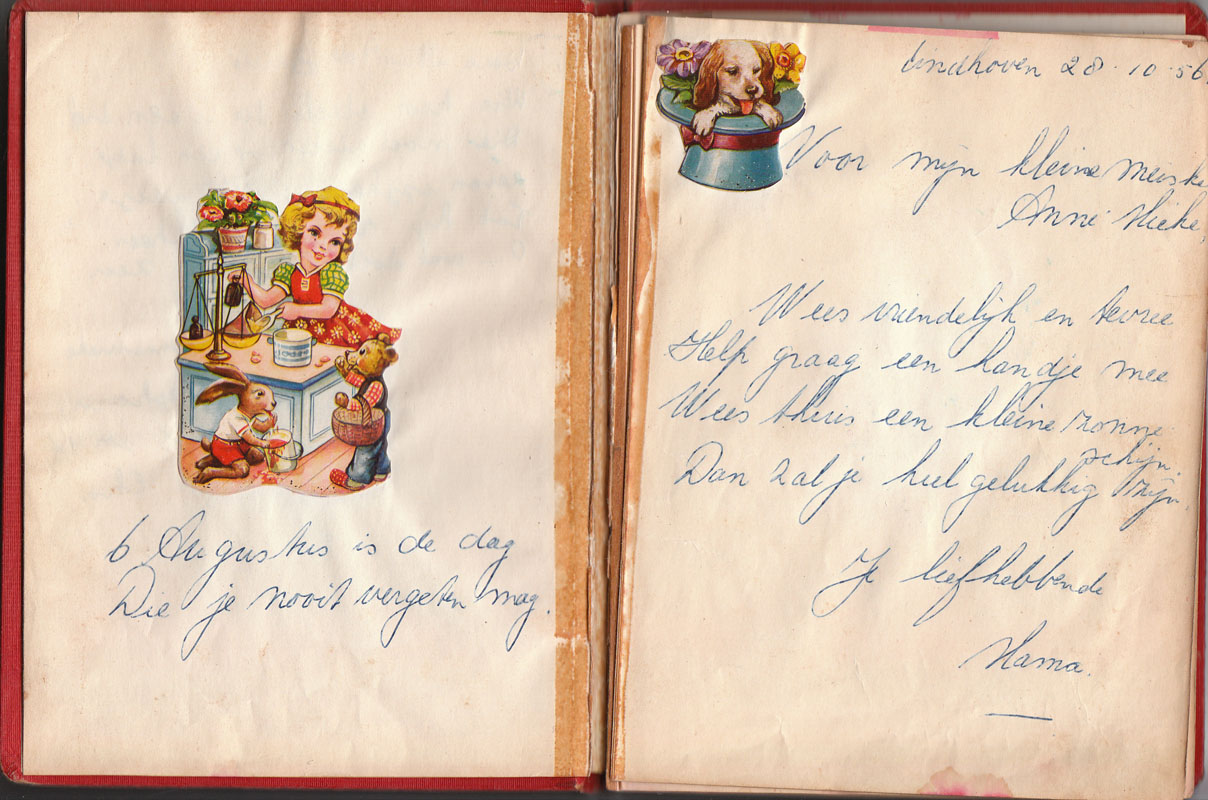 6 Augustus is de dag
Die je nooit vergeten mag.
Eindhoven 28-10-56.
Voor mijn kleine meiske
Anne Mieke.
Wees vriendelijk en tevree
Help graag een handje mee
Wees thuis een kleine zonne
schijn.
Dan zal je heel gelukkig zijn.
Je liefhebbende
Mama.